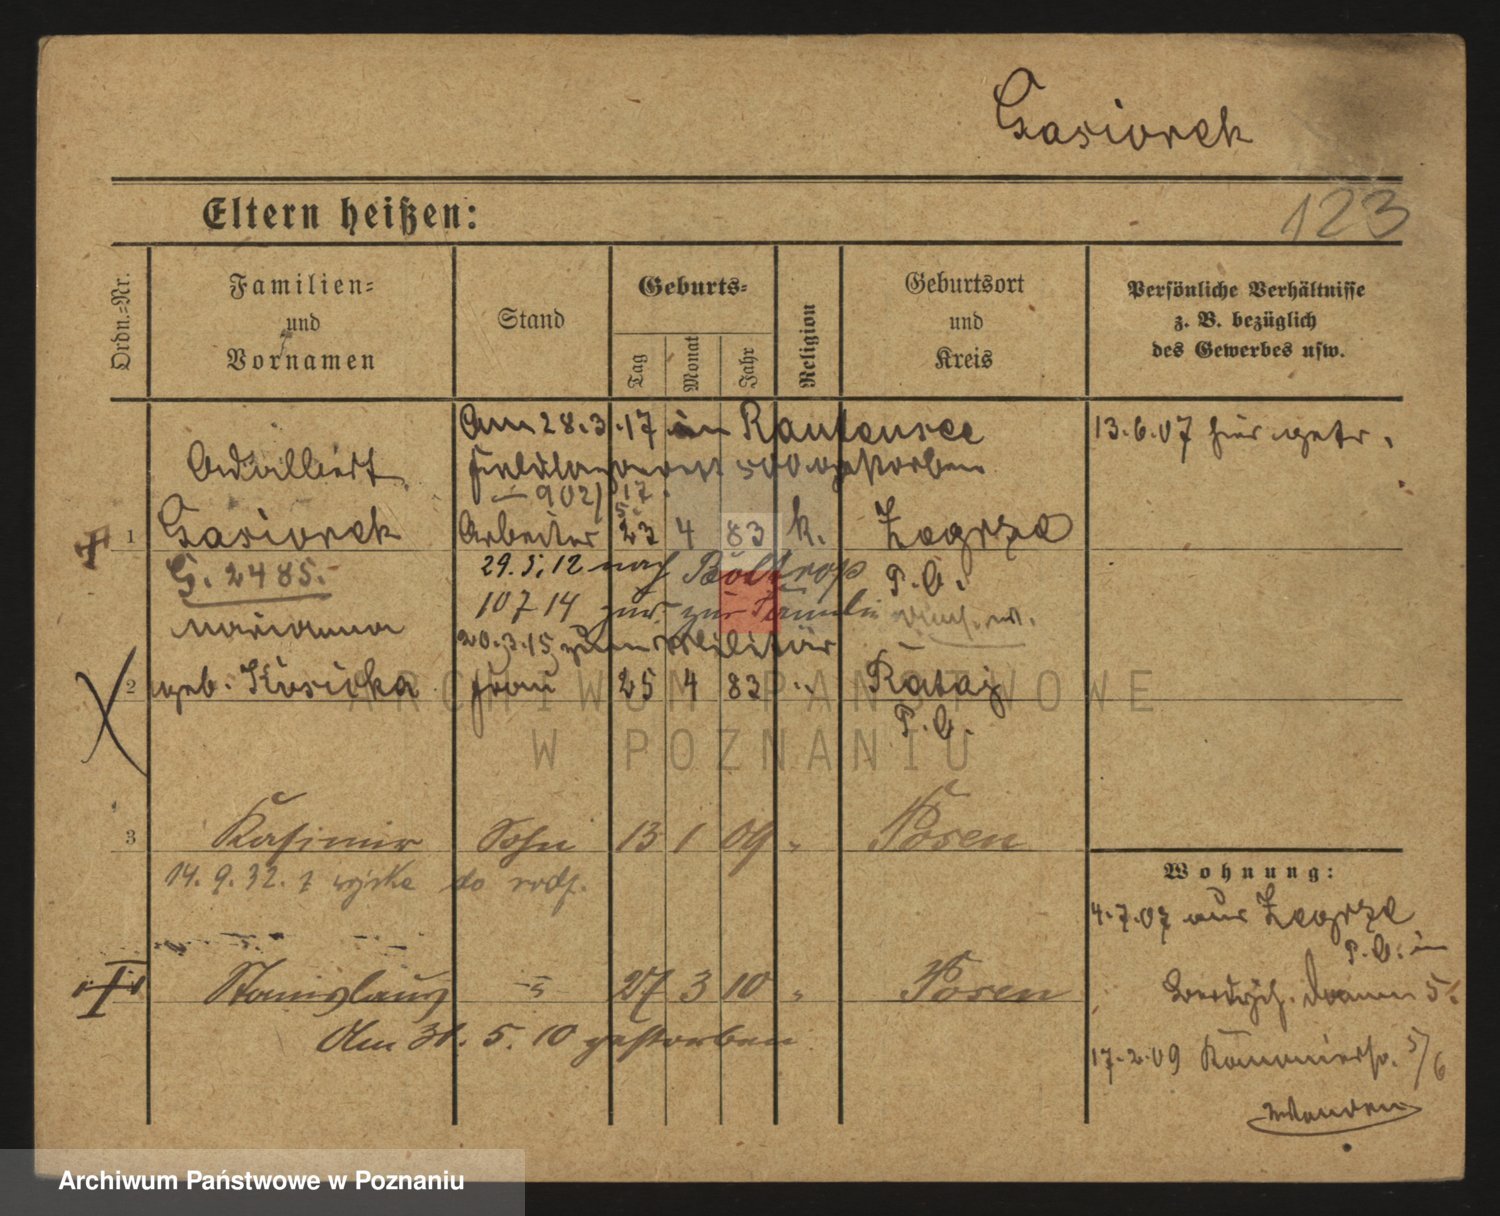 Gasiorek
123
Eltern heißen:
Ordn.-Nr.
Familien-
und
Vornamen
Stand
Geburts-
Tag
Monat
Jahr
Religion
Geburtsort
und
Kreis
Persönliche Verhältnisse
z. B. bezüglich
des Gewerbes usw.
Am 28.3.17 in Rautensee
gestorben
902/17.
13.6.07 hier getr.
Adalbert
1 Gasiorek Arbeiter 23 4 83 k. Zegrze
G. 2485. 29.5.12 nach Bottrop P.O.
10 7 14 zur Familie
Marianna 20.3.15 zum Militär
2 geb. Kosicka Frau 25 4 83 " Rataj
P.O.
ARCHIWUM PAŃSTWOWE
W POZNANIU
3 Kasimir Sohn 13 1 09 " Posen
14.9.32. do
Wohnung:
4.7.07 aus Zegrze
P.O. in
Stanislaus " 27 3 10 " Posen
5.
Am 31. 5. 10 gestorben
17.2.09
5/6
Archiwum Państwowe w Poznaniu